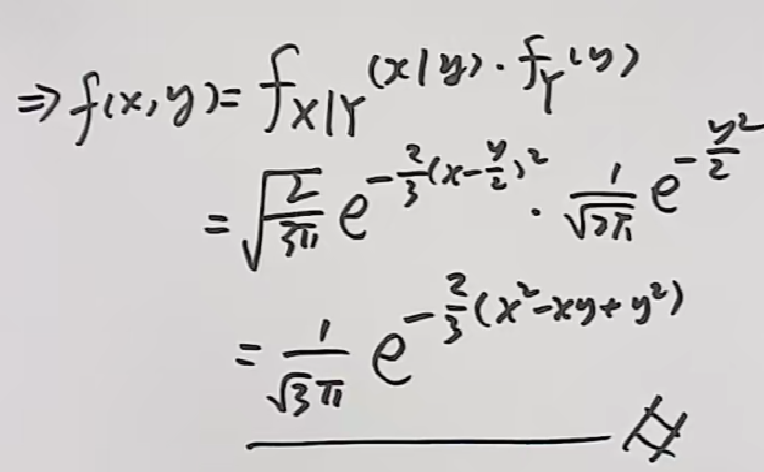 ⇒ f(x,y) = f_{X|Y}(x|y) · f_Y(y)
= √(2/(3π)) e^{-2/3(x-y/2)²} · 1/√(2π) e^{-y²/2}
= 1/(√3π) e^{-2/3(x²-xy+y²)}
#